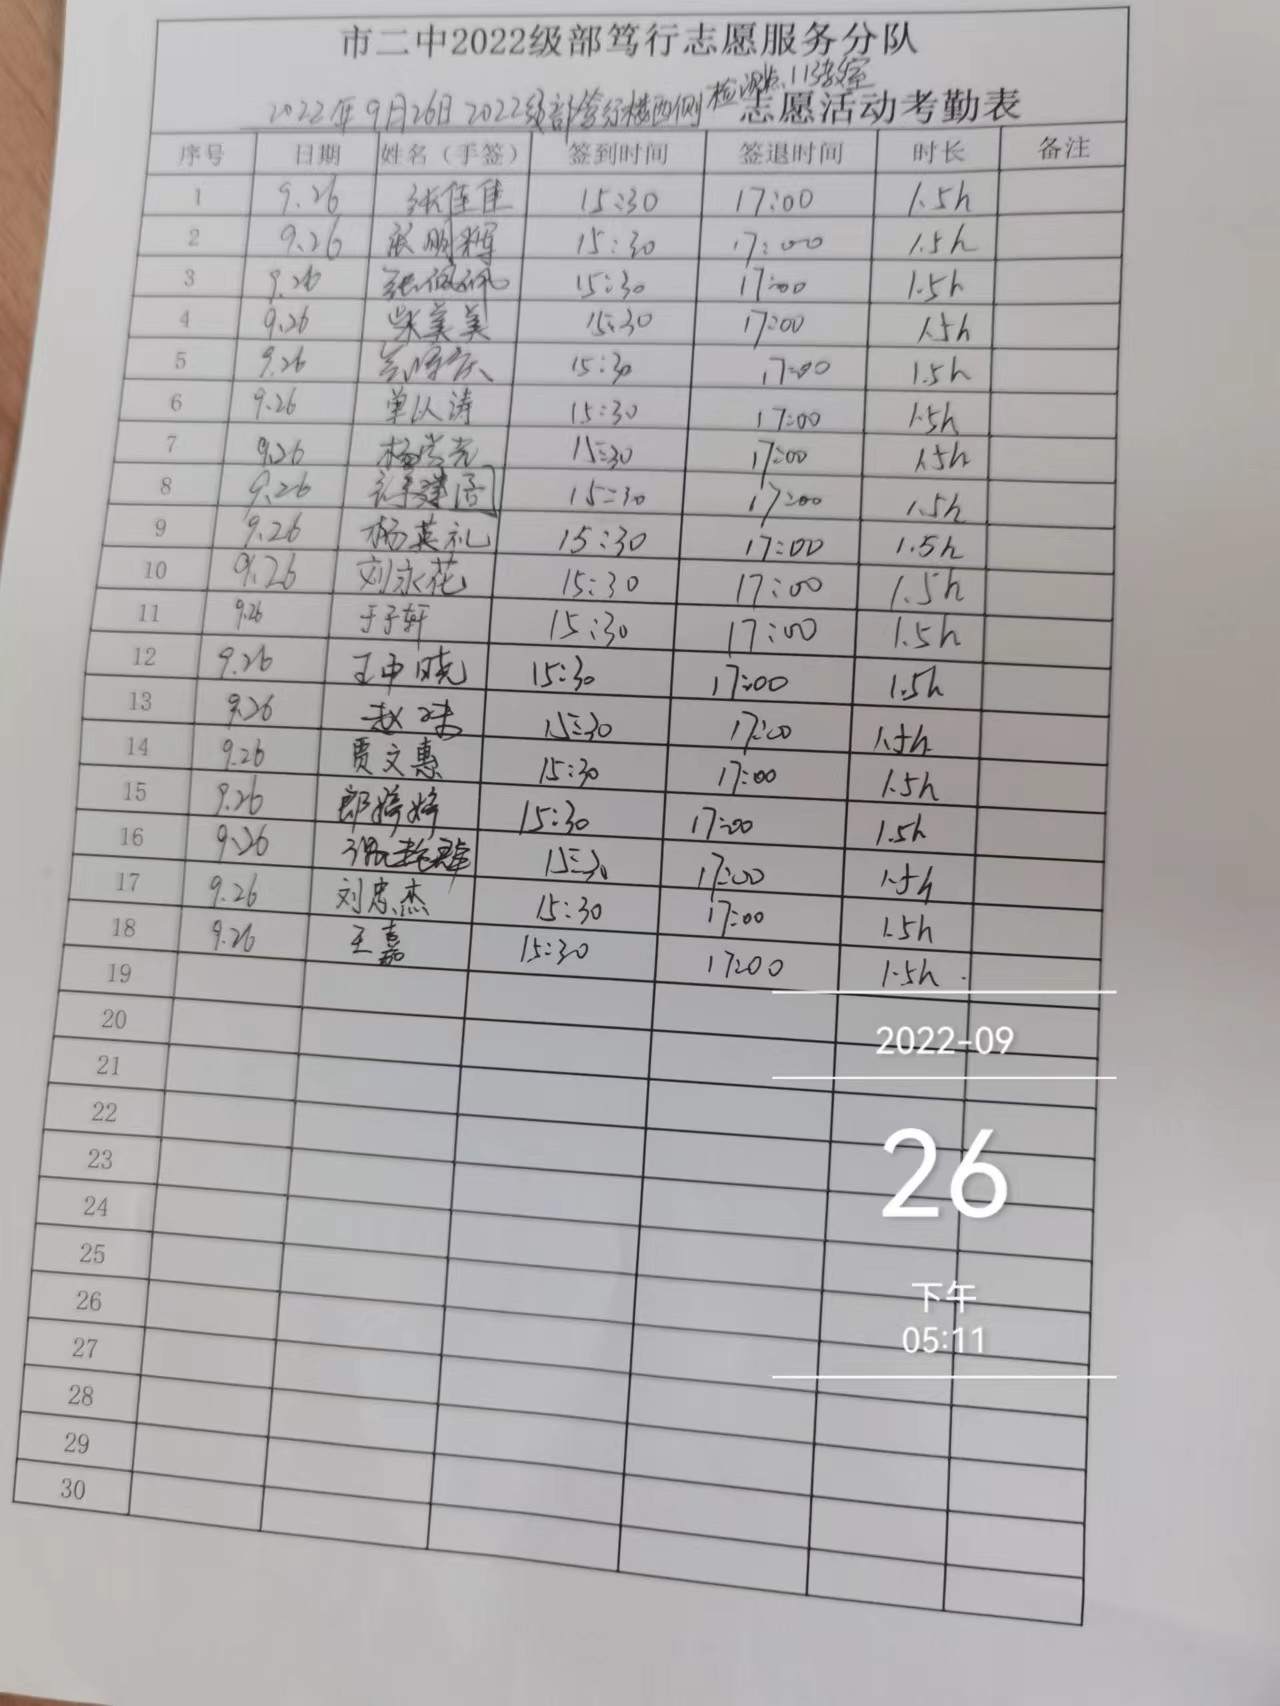 市二中2022级部笃行志愿服务分队
2022年9月26日 2022级部笃行楼西侧检测点113教室 志愿活动考勤表
序号 日期 姓名（手签） 签到时间 签退时间 时长 备注
1 9.26 张佳佳 15:30 17:00 1.5h
2 9.26 15:30 17:00 1.5h
3 9.26 张佩佩 15:30 17:00 1.5h
4 9.26 柴美美 15:30 17:00 1.5h
5 9.26 15:30 17:00 1.5h
6 9.26 单以涛 15:30 17:00 1.5h
7 9.26 15:30 17:00 1.5h
8 9.26 15:30 17:00 1.5h
9 9.26 杨英礼 15:30 17:00 1.5h
10 9.26 刘永花 15:30 17:00 1.5h
11 9.26 于子轩 15:30 17:00 1.5h
12 9.26 王中晓 15:30 17:00 1.5h
13 9.26 15:30 17:00 1.5h
14 9.26 贾文惠 15:30 17:00 1.5h
15 9.26 郎婷婷 15:30 17:00 1.5h
16 9.26 15:30 17:00 1.5h
17 9.26 刘忠杰 15:30 17:00 1.5h
18 9.26 王嘉 15:30 17:00 1.5h
19
20
21
22
23
24
25
26
27
28
29
30
2022-09
26
下午
05:11